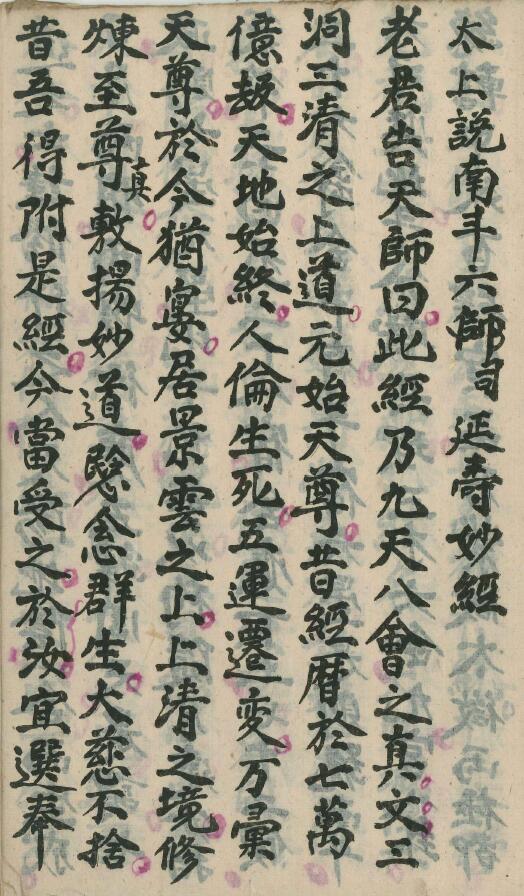 太上説南斗六師司延壽妙經
老君告天師曰此經乃九天八會之真文三
洞三清之上道元始天尊昔經曆於七萬
億刼天地始終人倫生死五運遷变万彙
天尊於今猶宴居景雲之上上清之境修
煉至尊真敷揚妙道愍念群生大慈不捨
昔吾得附是經今當受之於汝宜選奉